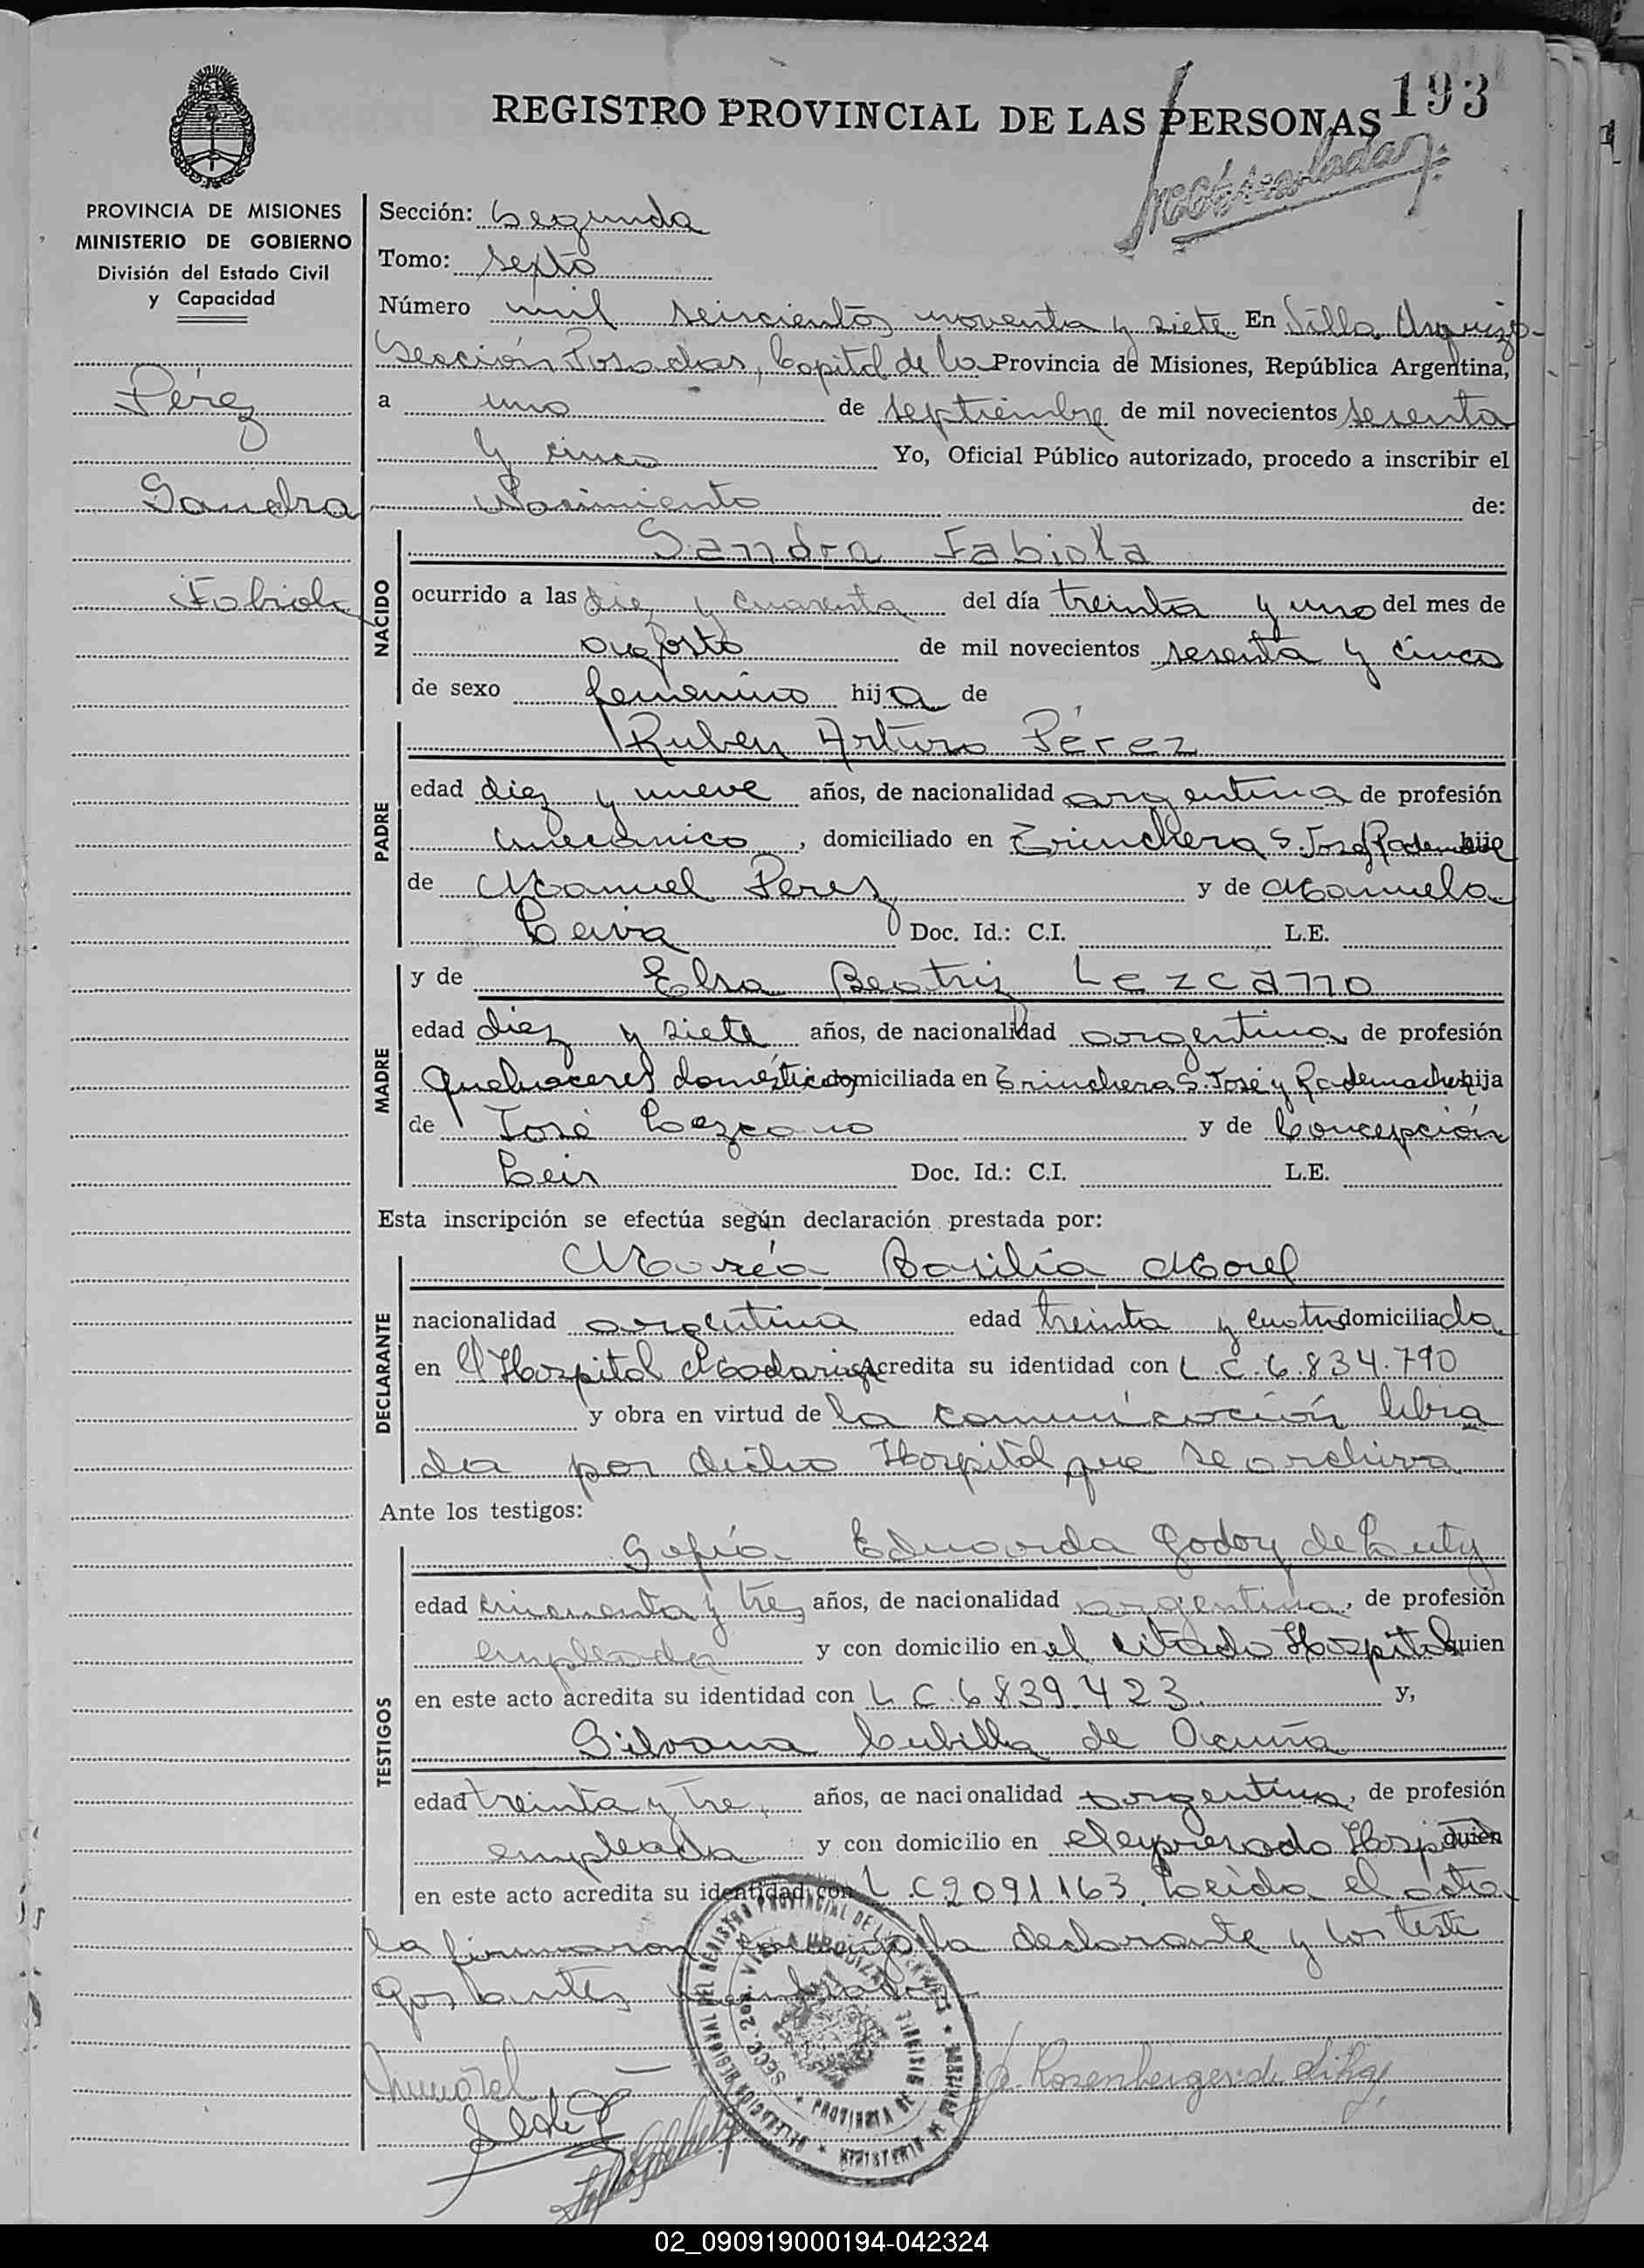 193
REGISTRO PROVINCIAL DE LAS PERSONAS
PROVINCIA DE MISIONES
MINISTERIO DE GOBIERNO
División del Estado Civil
y Capacidad
Pérez
Sandra
Fabiola
Sección: Segunda
Tomo: Sexto
Número mil seiscientos noventa y siete En Villa Urquiza
Sección Posadas, Capital de la Provincia de Misiones, República Argentina,
a uno de septiembre de mil novecientos sesenta
y cinco Yo, Oficial Público autorizado, procedo a inscribir el
Nacimiento de:
NACIDO
Sandra Fabiola
ocurrido a las diez y cuarenta del día treinta y uno del mes de
agosto de mil novecientos sesenta y cinco
de sexo femenino hija de
PADRE
Ruben Arturo Pérez
edad diez y nueve años, de nacionalidad argentina de profesión
mecánico, domiciliado en Trinchera S. José y hijo
de Manuel Perez y de Manuela
Leiva Doc. Id.: C.I. L.E.
MADRE
y de Elsa Beatriz Lezcano
edad diez y siete años, de nacionalidad argentina de profesión
Quehaceres domésticos domiciliada en Trinchera S. José y Rademacher hija
de José Lezcano y de Concepción
Doc. Id.: C.I. L.E.
Esta inscripción se efectúa según declaración prestada por:
DECLARANTE
María Basilia Morel
nacionalidad argentina edad treinta y cuatro domiciliada
en el Hospital Madariaga Acredita su identidad con L.C.6.834.790
y obra en virtud de la comunicación libra
da por dicho Hospital que se archiva
Ante los testigos:
TESTIGOS
Sofía Eduarda Godoy de
edad cincuenta y tres años, de nacionalidad argentina, de profesión
empleada y con domicilio en el citado Hospital quien
en este acto acredita su identidad con L.C.6839.423. y,
Silvana Cubilla de Acuña
edad treinta y tres años, de nacionalidad argentina, de profesión
empleada y con domicilio en el expresado Hospital quien
en este acto acredita su identidad con L.C2091163. Leída el acta
la firmaron conmigo la declarante y los testi
gos antes nombrados
SECC. 2da. VILLA URQUIZA
PROVINCIA DE MISIONES
02_090919000194-042324